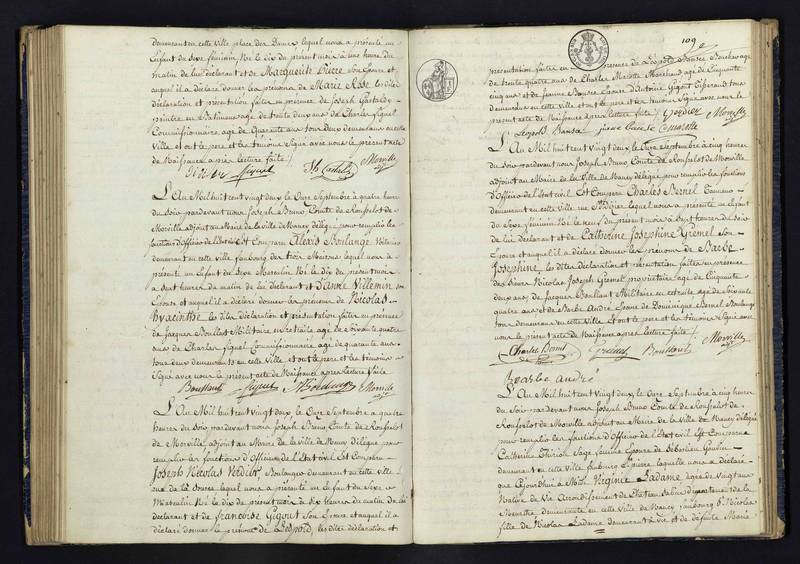 demeurant en cette Ville place des Dames lequel nous a présenté un
Enfant du Sexe féminin Né le dix du présent mois à une heure du
Matin de lui déclarant et de Marguerite Pierre Son Epouse et
auquel il a déclaré donner les prénoms de Marie Rose les dites
déclaration et présentation faites en présence de Joseph
peintre en Batiments agé de trente deux ans de Charles Siquel
Commissionnaire agé de Quarante ans tous deux demeurants en cette
Ville et ont le pere et les témoins Signé avec nous le présent acte
de Naissance après Lecture faite /
Siquel Morville
L'An Mil huit cent Vingt deux le Onze Septembre à quatre heures
du Soir pardevant nous Joseph Bruno Comte de Rousselot de
Morville adjoint au Maire de la Ville de Nancy délégué pour remplir les
fonctions d'Officier de l'Etat civil Est Comparu Alexis Boulange
demeurant en cette Ville faubourg des trois Maisons lequel nous a
présenté un Enfant du Sexe Masculin Né le dix du présent mois
à Sept heures du matin de lui déclarant et d'Anne Villemin son
Epouse et auquel il a déclaré donner les prénoms de Nicolas
Hyacinthe les dites déclaration et présentation faites en présence
de Jacques Boullant Militaire en retraite agé de Soixante quatre
ans de Charles Siquel Commissionnaire agé de quarante ans
tous deux demeurants en cette Ville et ont le pere et les témoins
Signé avec nous le présent acte de Naissance après Lecture faite
Boullant Siquel Morville
L'An Mil huit cent Vingt deux le Onze Septembre à quatre
heures du Soir pardevant nous Joseph Bruno Comte de Rousselot
de Morville adjoint au Maire de la Ville de Nancy délégué pour
remplir les fonctions d'Officier de l'Etat civil Est Comparu
Joseph Nicolas Verdier Boulanger demeurant en cette Ville
rue de la Source lequel nous a présenté un Enfant du Sexe
Masculin Né le dix du présent mois à dix heures du matin de lui
déclarant et de françoise Gigout Son Epouse et auquel il a
déclaré donner le prénom de Léopold, les dites déclaration et
109
présentation faites en présence de Léopold
de trente quatre ans de Charles Marotte Marchand agé de Cinquante
cinq ans et de Jeanne Epouse d'Antoine Gigout Tisserand tous
demeurants en cette Ville et ont le pere et les témoins Signé avec nous le
présent acte de Naissance après lecture faite / Verdier Morville
Leopold Marotte
L'An Mil huit cent Vingt deux le Onze Septembre à cinq heures
du Soir pardevant nous Joseph Bruno Comte de Rousselot de Morville
adjoint au Maire de la Ville de Nancy délégué pour remplir les fonctions
d'Officier de l'état civil Est Comparu Charles Bernel
demeurant en cette Ville rue St Dizier lequel nous a présenté un Enfant
du Sexe féminin Né le neuf du présent mois à Sept heures du soir
de lui déclarant et de Catherine Josephine Gremel Son
Epouse et auquel il a déclaré donner les prénoms de Barbe
Josephine, les dites déclaration et présentation faites en présence
des Sieurs Nicolas Joseph Gremel propriétaire agé de Cinquante
deux ans, de Jacques Boullant Militaire en retraite agé de Soixante
quatre ans et de Barbe André Epouse de Dominique Bernel
tous demeurants en cette Ville et ont le pere et les témoins Signé avec
nous le présent acte de Naissance après lecture faite /
Charles Bernel Gremel Boullant Morville
Barbe andré
L'An Mil huit cent Vingt deux le Onze Septembre à cinq heures
du Soir pardevant nous Joseph Bruno Comte de Rousselot de
Morville adjoint au Maire de la Ville de Nancy délégué
pour remplir les fonctions d'Officier de l'Etat civil Est Comparue
Catherine Sage femme Epouse de Sébastien
demeurant en cette Ville faubourg St pierre laquelle nous a déclaré
que Cejourd'hui à Midi Virginie Ladame agée de vingt ans
Native de Vic Arrondissement de Chateau Salins département de la
Meurthe, demeurante en cette Ville de Nancy faubourg St Nicolas
fille de Nicolas Ladame demeurant à Vic et de défunte Marie